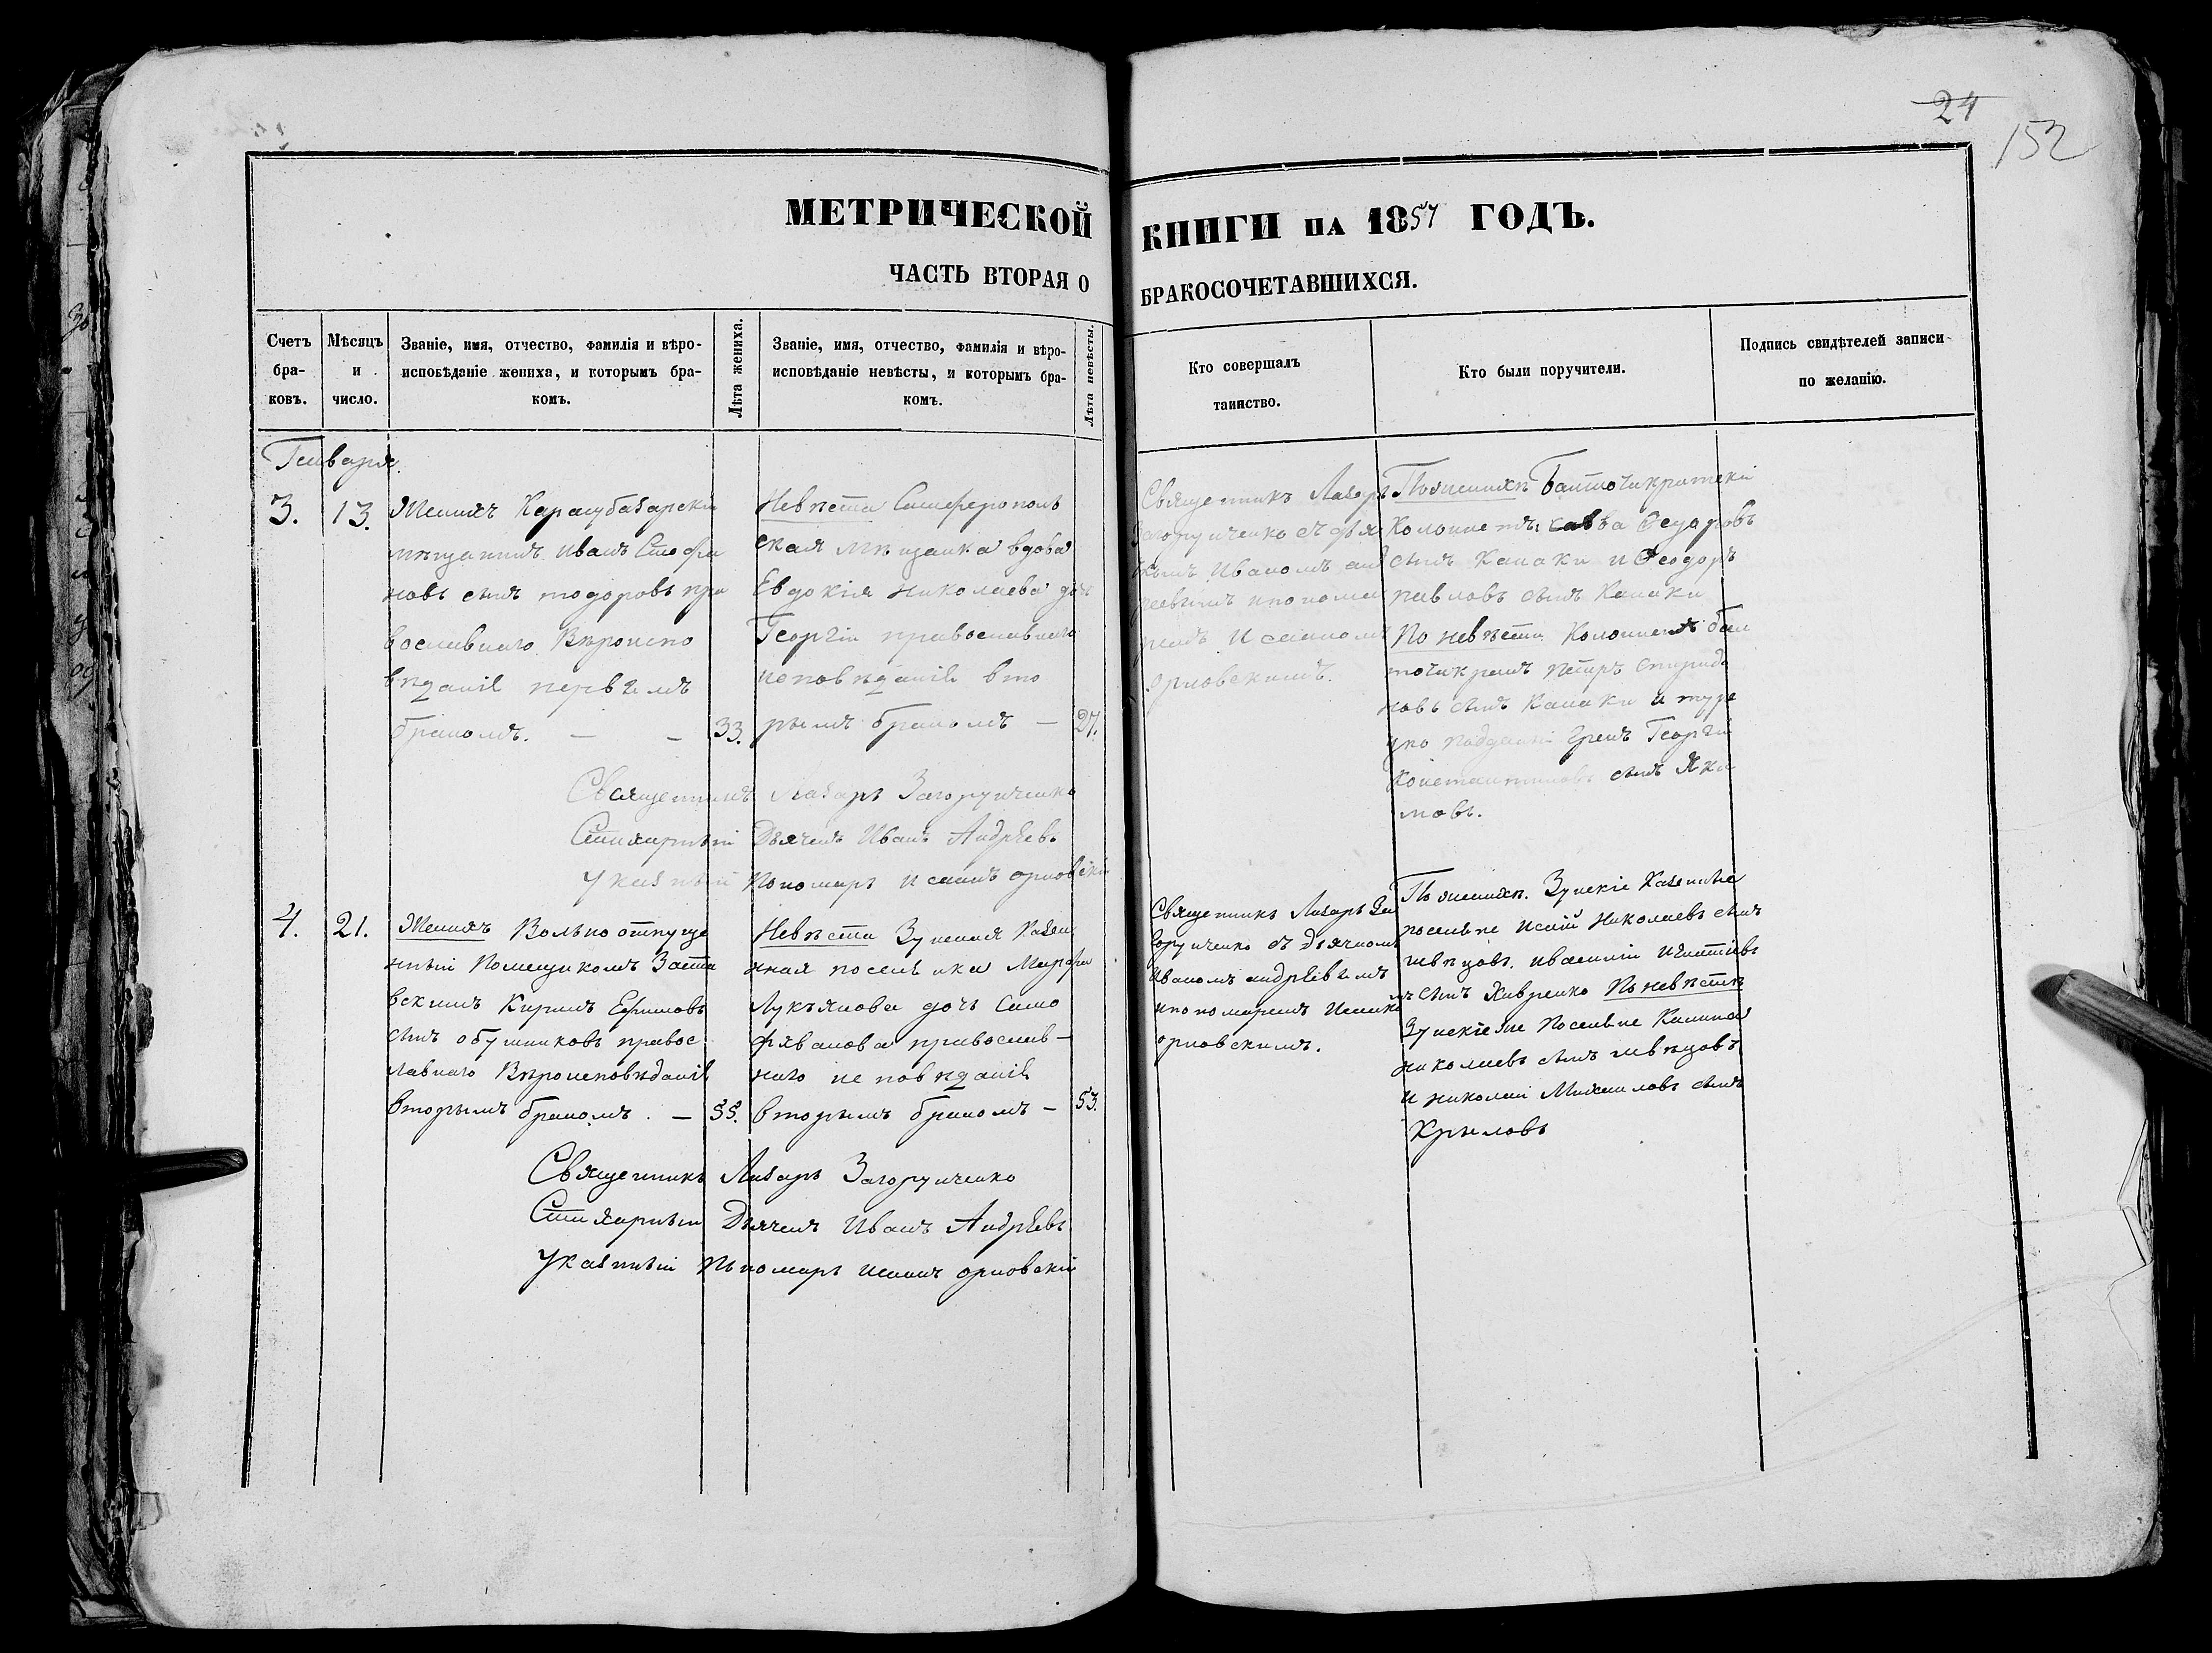 24
152
МЕТРИЧЕСКОЙ КНИГИ НА 1857 ГОДЪ.
ЧАСТЬ ВТОРАЯ О БРАКОСОЧЕТАВШИХСЯ.
Счетъ бра-ковъ.
Мѣсяцъ и число.
Званіе, имя, отчество, фамилія и вѣро-
исповѣданіе жениха, и которымъ бра-
комъ.
Лѣта жениха.
Званіе, имя, отчество, фамилія и вѣро-
исповѣданіе невѣсты, и которымъ бра-
комъ.
Лѣта невѣсты.
Кто совершалъ
таинство.
Кто были поручители.
Подпись свидѣтелей записи
по желанію.
Генваря.
3.
13.
Женихъ Карасубазарскій
мещанинъ Иванъ
новъ сынъ тодоровъ пра
вославнаго Вѣроиспо
вѣданія первымъ
бракомъ. — —
33.
Невѣста Симферополь
ская мѣщанка вдова
Евдокія Николаева дочь
Георгіи православнаго
исповѣданія вто
рымъ бракомъ —
27.
Священникъ Лазарь
Загоруиченко
Иваномъ анд
реевымъ и понома
ремъ Исаіаномъ
орловскимъ.
По женихѣ Балточикракскіи
Колонисты: Савва Федоровъ
сынъ Канаки и Феодоръ
павловъ сынъ Канаки
По невѣсти Колонистъ бал
точикракъ петръ спиридо
новъ сынъ Канаки и туре
цко подданій грекъ Георгій
Константиновъ сынъ Яки
мовъ.
Священникъ Лазарь Загоруиченко
Стихарный Дьячекъ Иванъ Андрѣевъ
Указный Пономарь Исаакъ орловскій
4.
21.
Женихъ Вольно отпуще
нный Помещикомъ Заста
вскимъ Кирилъ Ефимовъ
сынъ обушниковъ правос
лавнаго Вѣроисповѣданія
вторымъ бракомъ. —
55.
Невѣста Зуйская Казен
ная поселянка Марфа
Лукьянова дочь Само
фявалова православ-
наго исповѣданія
вторымъ бракомъ —
53.
Священникъ Лазарь За
горуиченко съ дьячкомъ
Иваномъ андрѣевымъ
и пономаремъ Исаакомъ
орловскимъ.
По женихѣ. Зуйскіе Казенные
поселяне Исаій Николаевъ сынъ
швецовъ. ивасилій
сынъ Хавренко По невѣстѣ
Зуйскіе же Поселяне Калина
николаевъ сынъ швецовъ
и николай Михаиловъ сынъ
Крыловъ
Священникъ Лазарь Загоруиченко
Стихарный Дьячекъ Иванъ Андрѣевъ
Указный Пономарь Исаакъ орловскій